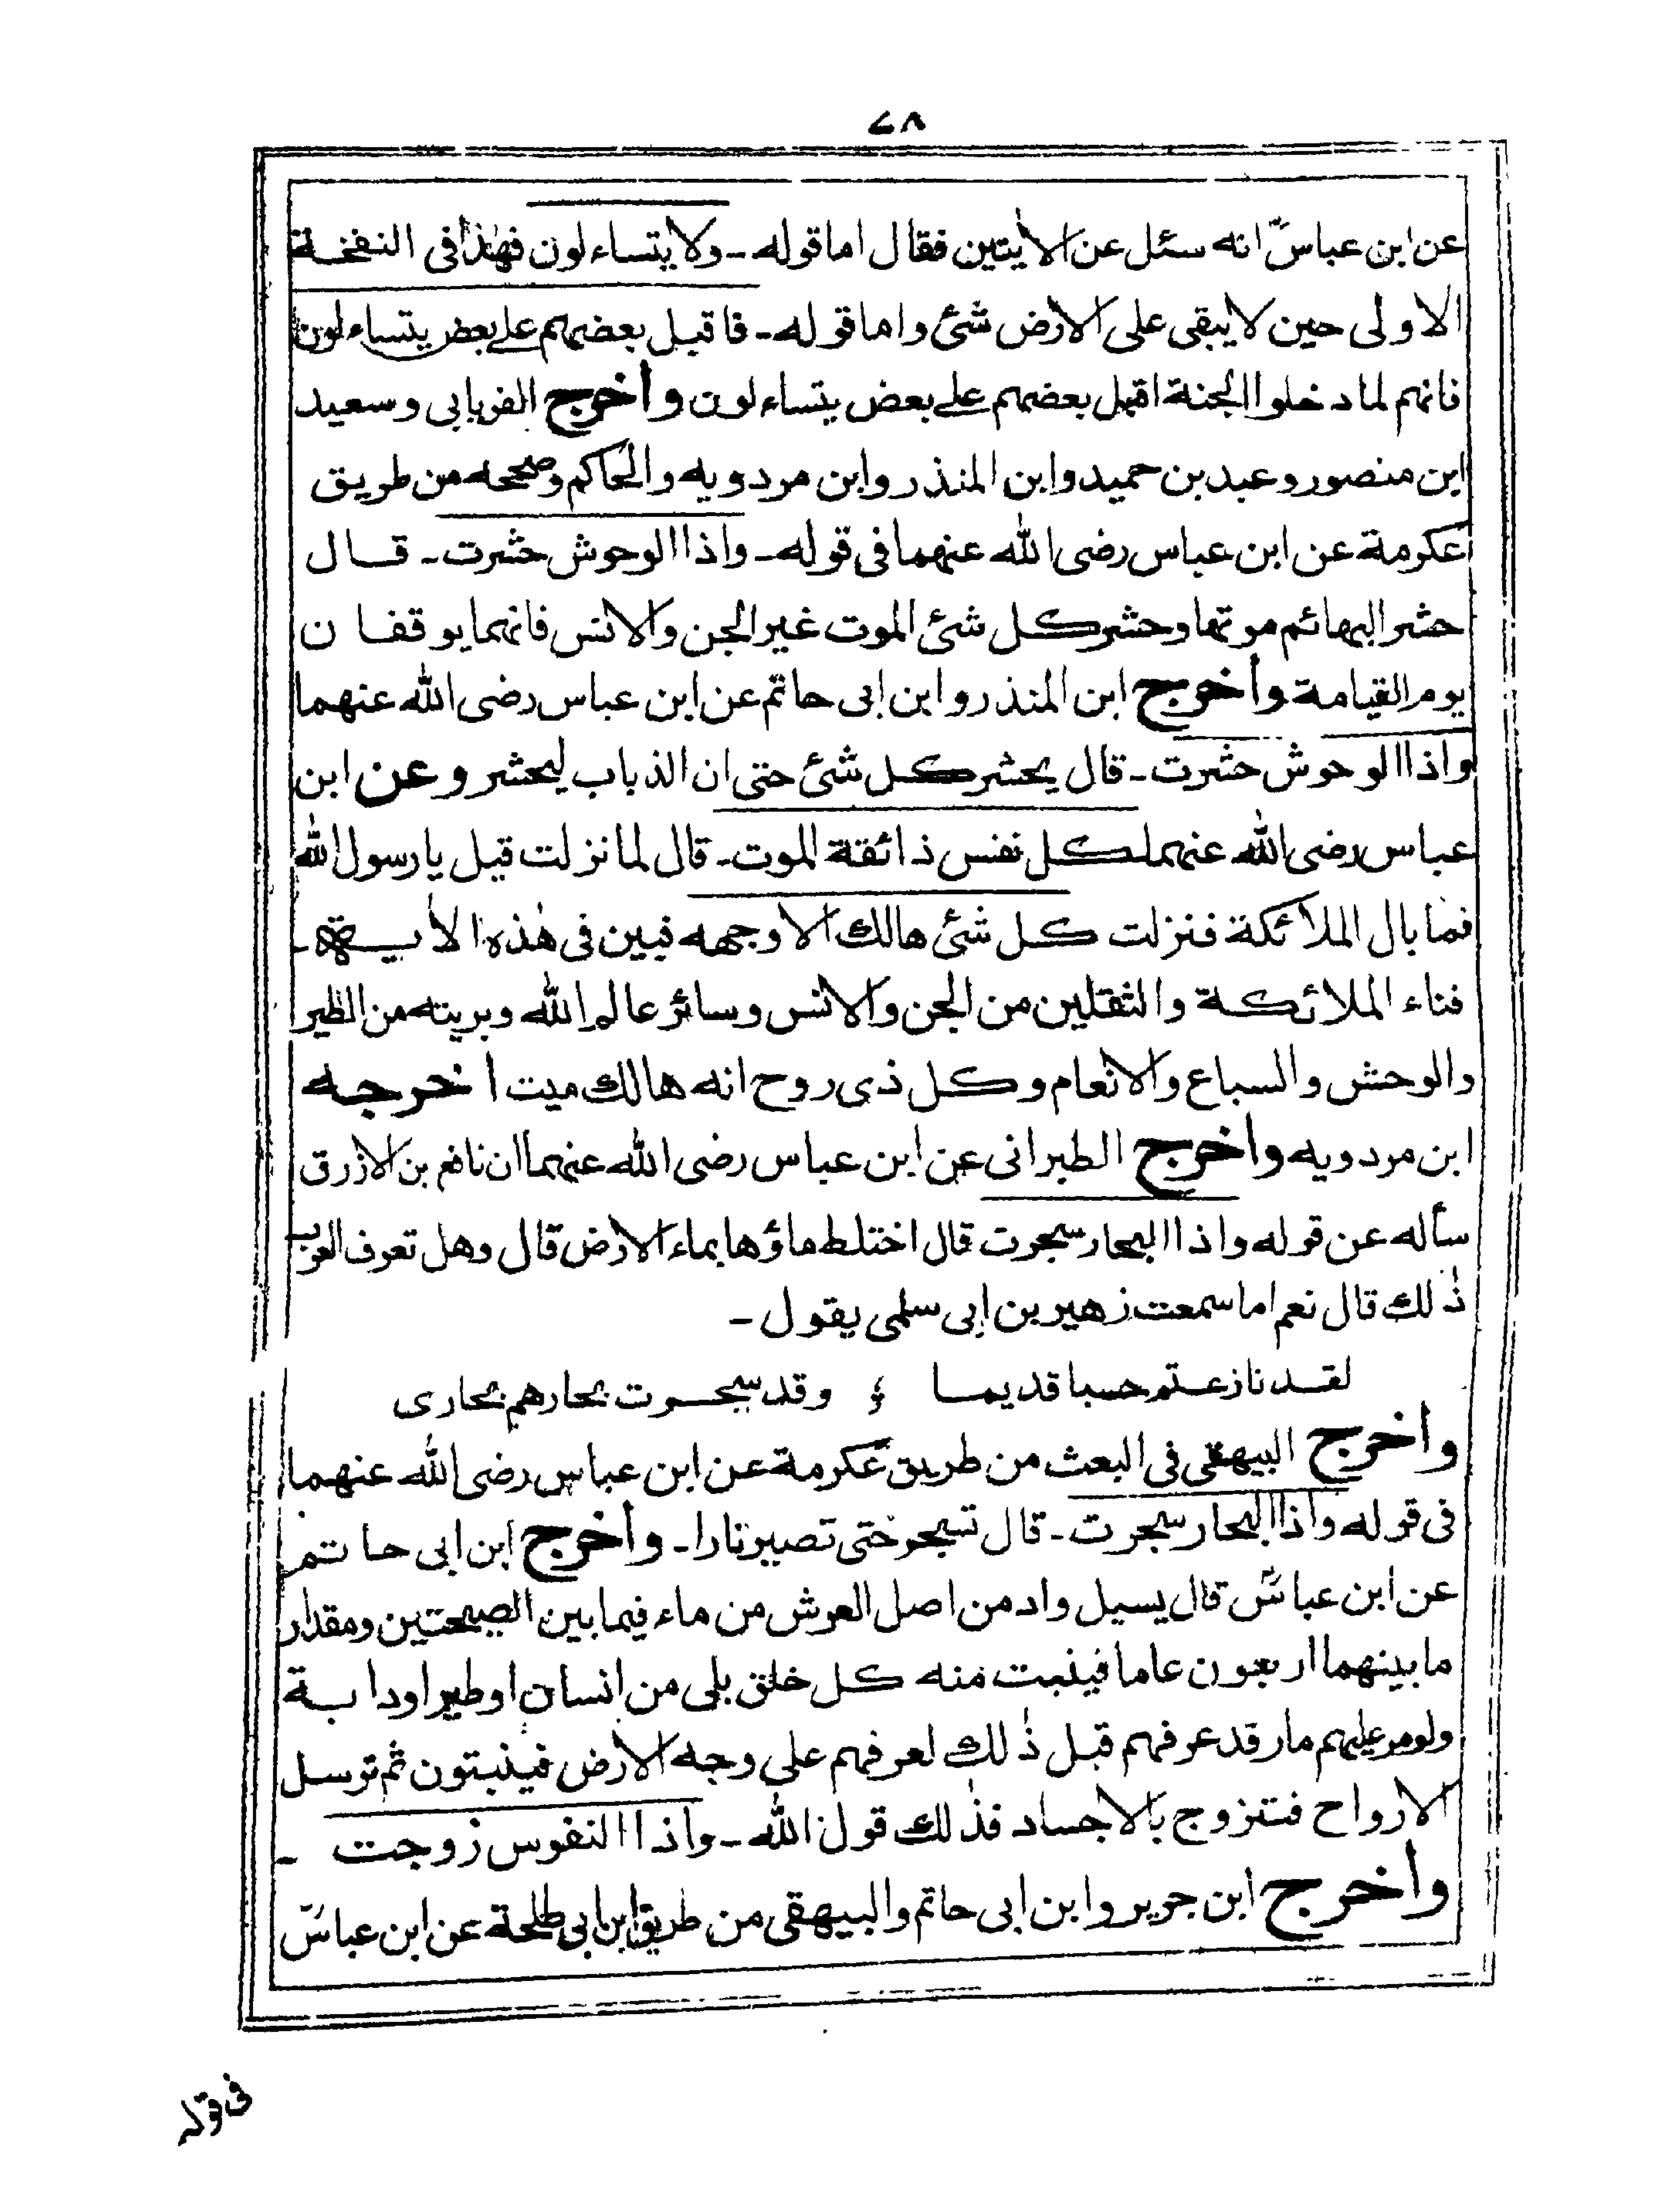 ٧٨
عن ابن عباسؓ انه سئل عن الاٰيتين فقال اما قوله ـ ولا يتساءلون فهٰذا فى النفخة
الاولى حين لا يبقى على الارض شئ واما قوله ـ فاقبل بعضهم على بعض يتساءلون
فانهم لما دخلوا الجنة اقبل بعضهم على بعض يتساءلون وأخرج الفريابى وسعيد
ابن منصور وعبد بن حميد وابن المنذر وابن مردويه والحاكم وصححه من طريق
عكرمة عن ابن عباس رضى الله عنهما فى قوله ـ واذا الوحوش حشرت ـ قال
حشر البهائم موتها وحشر كل شئ الموت غير الجن والانس فانهما يوقفان
يوم القيامة وأخرج ابن المنذر وابن ابى حاتم عن ابن عباس رضى الله عنهما
واذا الوحوش حشرت ـ قال يحشر كل شئ حتى ان الذباب ليحشر وعن ابن
عباس رضى الله عنهما كل نفس ذائقة الموت ـ قال لما نزلت قيل يا رسول الله
فما بال الملائكة فنزلت كل شئ هالك الا وجهه فبين فى هٰذه الاٰية ـ
فناء الملائكة والثقلين من الجن والانس وسائر عالم الله وبريته من الطير
والوحش والسباع والانعام وكل ذى روح انه هالك ميت أخرجه
ابن مردويه وأخرج الطبرانى عن ابن عباس رضى الله عنهما ان نافع بن الازرق
سأله عن قوله واذا البحار سجرت قال اختلط ماؤها بماء الارض قال وهل تعرف العرب
ذٰلك قال نعم اما سمعت زهير بن ابى سلمى يقول ـ
لقد نازعتم حسبا قديما ؛ وقد سجرت بحارهم بحارى
وأخرج البيهقى فى البعث من طريق عكرمة عن ابن عباس رضى الله عنهما
فى قوله واذا البحار سجرت ـ قال تسجر حتى تصير نارا ـ وأخرج ابن ابى حاتم
عن ابن عباسؓ قال يسيل واد من اصل العرش من ماء فيما بين الصيحتين ومقدار
ما بينهما اربعون عاما فينبت منه كل خلق بلى من انسان او طير او دابة
ولو مر عليهم مار قد عرفهم قبل ذٰلك لعرفهم على وجه الارض فينبتون ثم ترسل
الارواح فتتزوج بالاجساد فذٰلك قول الله ـ واذا النفوس زوجت ـ
وأخرج ابن جرير وابن ابى حاتم والبيهقى من طريق ابن ابى طلحة عن ابن عباسؓ
فى قوله